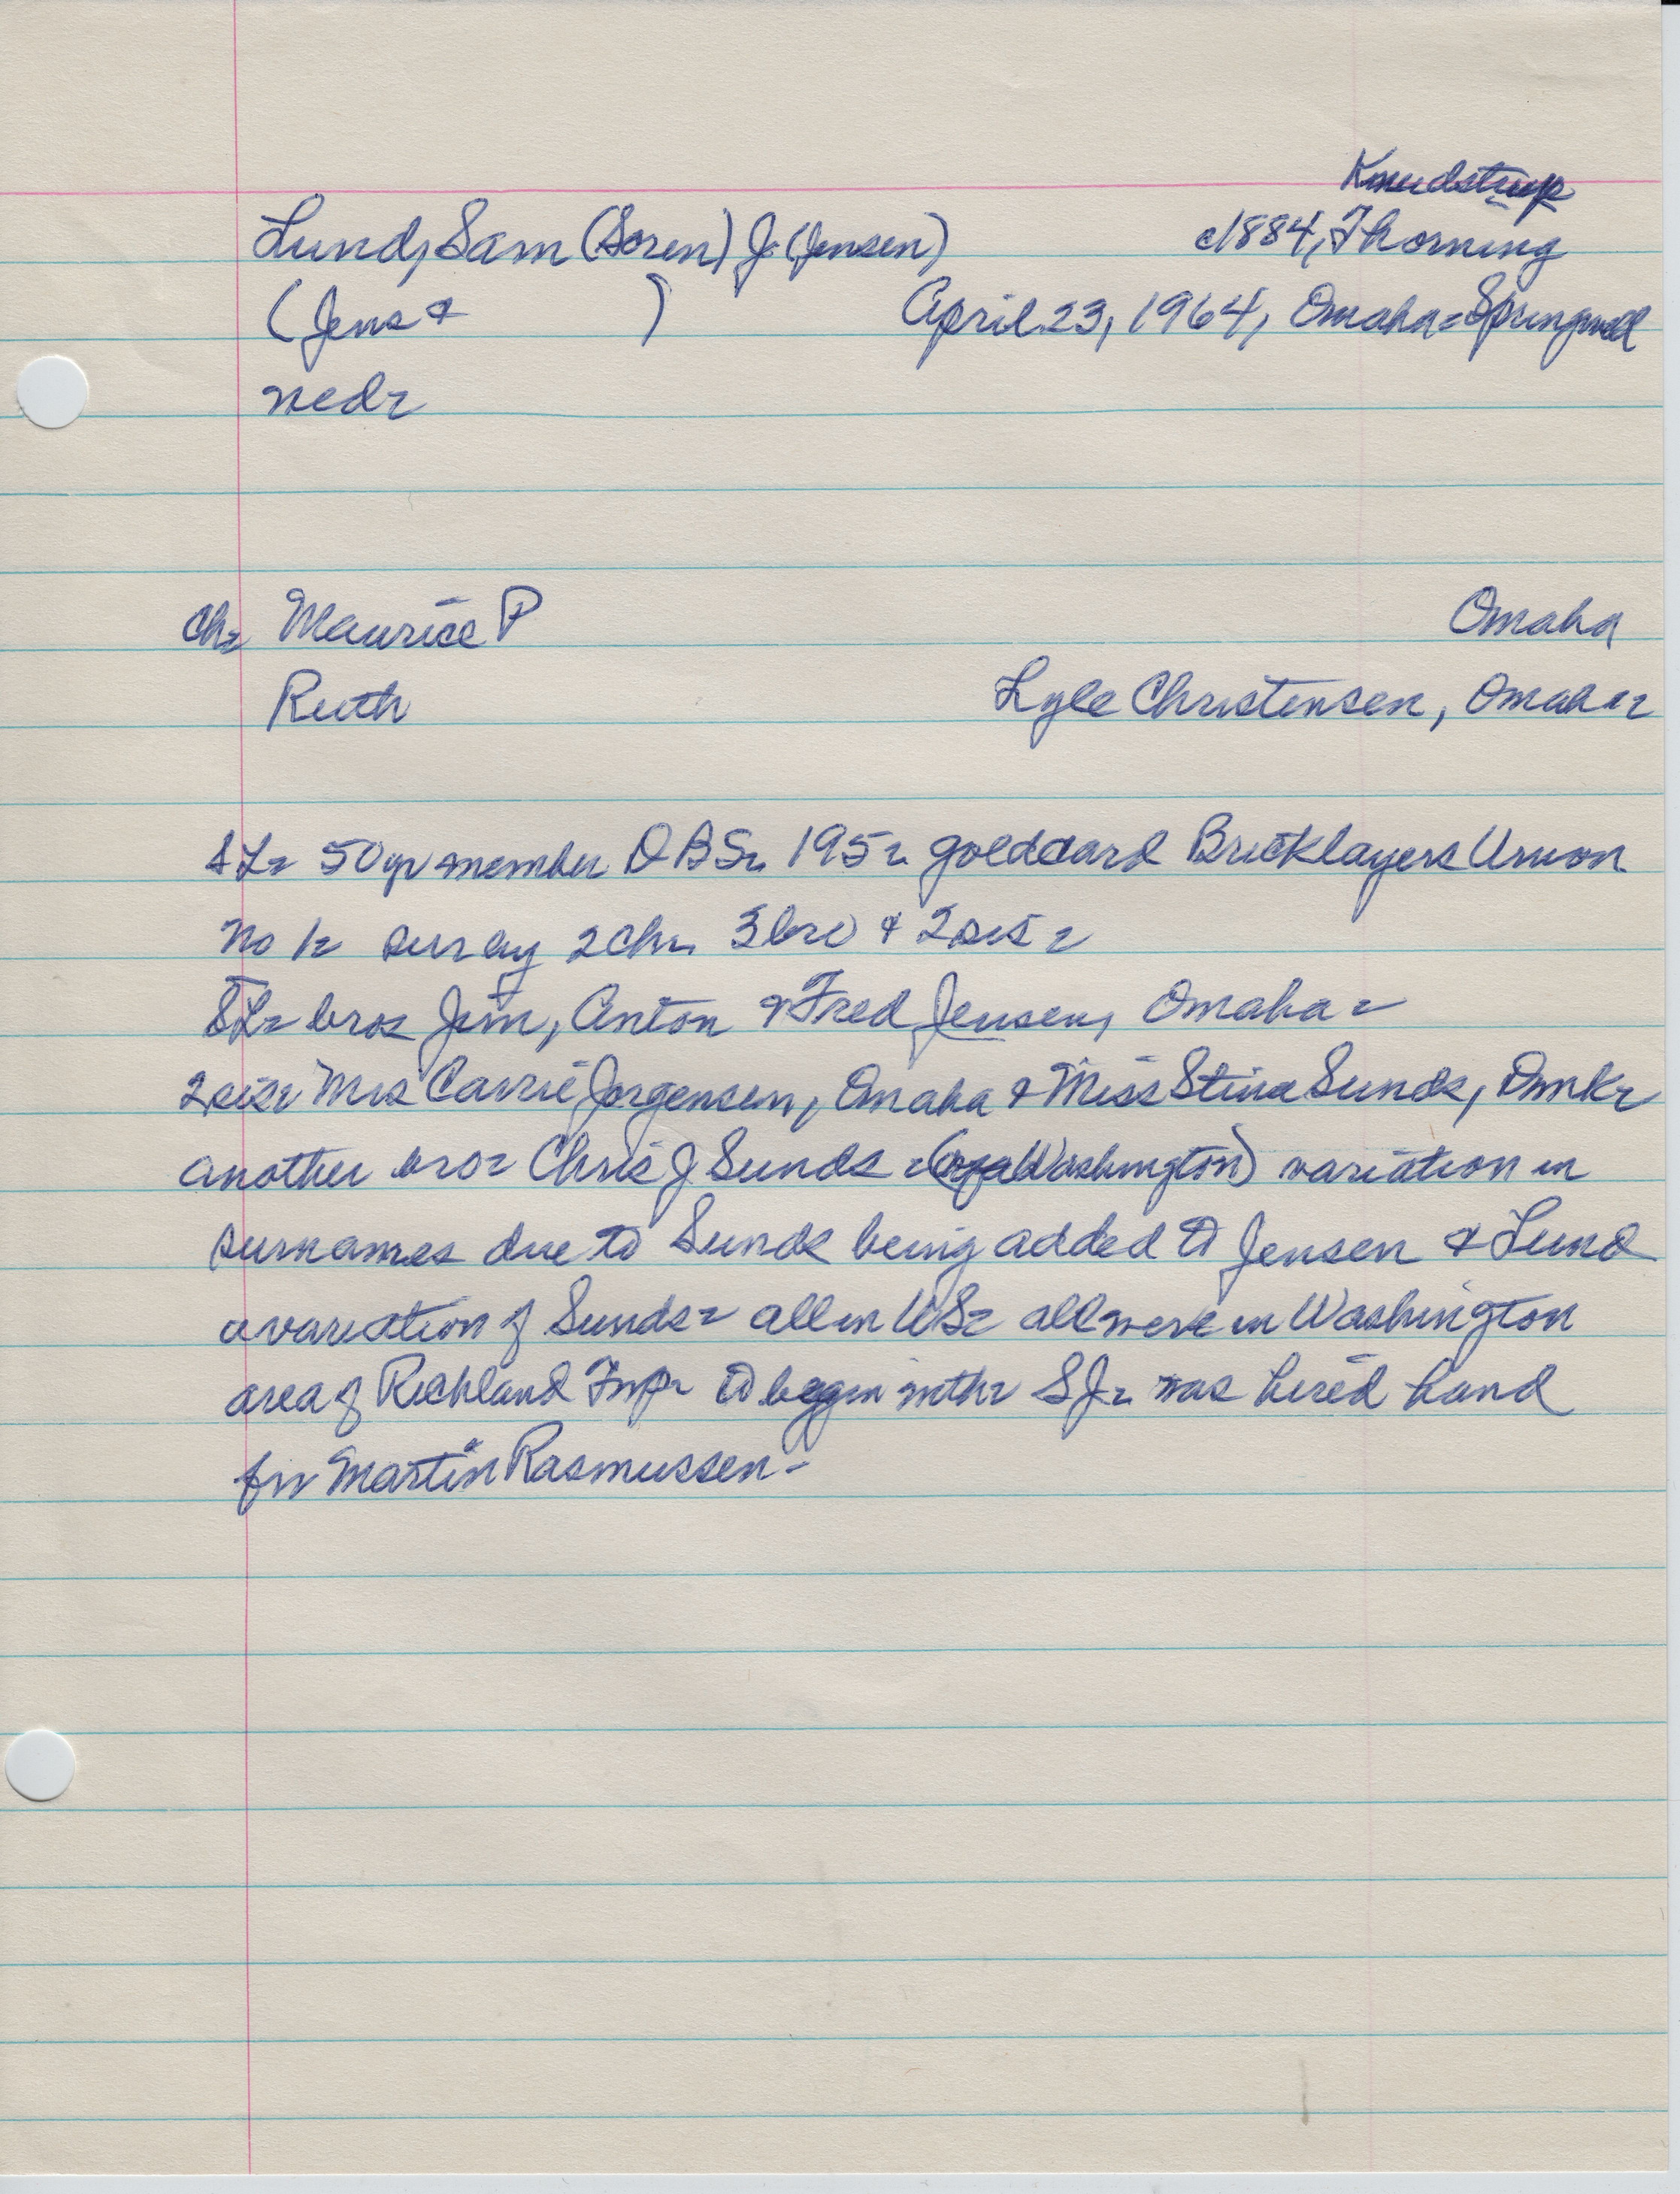 Knudstrup
Lund, Sam (Soren) J. (Jensen) c1884, Thorning
(Jens & ) April 23, 1964, Omaha = Springwell
ned=
ch= Maurice P Omaha
Ruth Lyle Christensen, Omaha=
SL= 50 yr member DBS= 195= goldcard Bricklayers Union
No 1= sur by 2 ch= 3 bro & 2 sis=
SL= bros Jim, Anton & Fred Jensen, Omaha=
2 sis= Mrs Carrie Jorgensen, Omaha & Miss Stina Sunds, Dmk=
another bro= Chris J Sunds = (Washington) variation in
surnames due to Sunds being added to Jensen & Lund
a variation of Sunds= all in US= all were in Washington
area of Richland Twp= to begin with= SJ= was hired hand
for Martin Rasmussen-